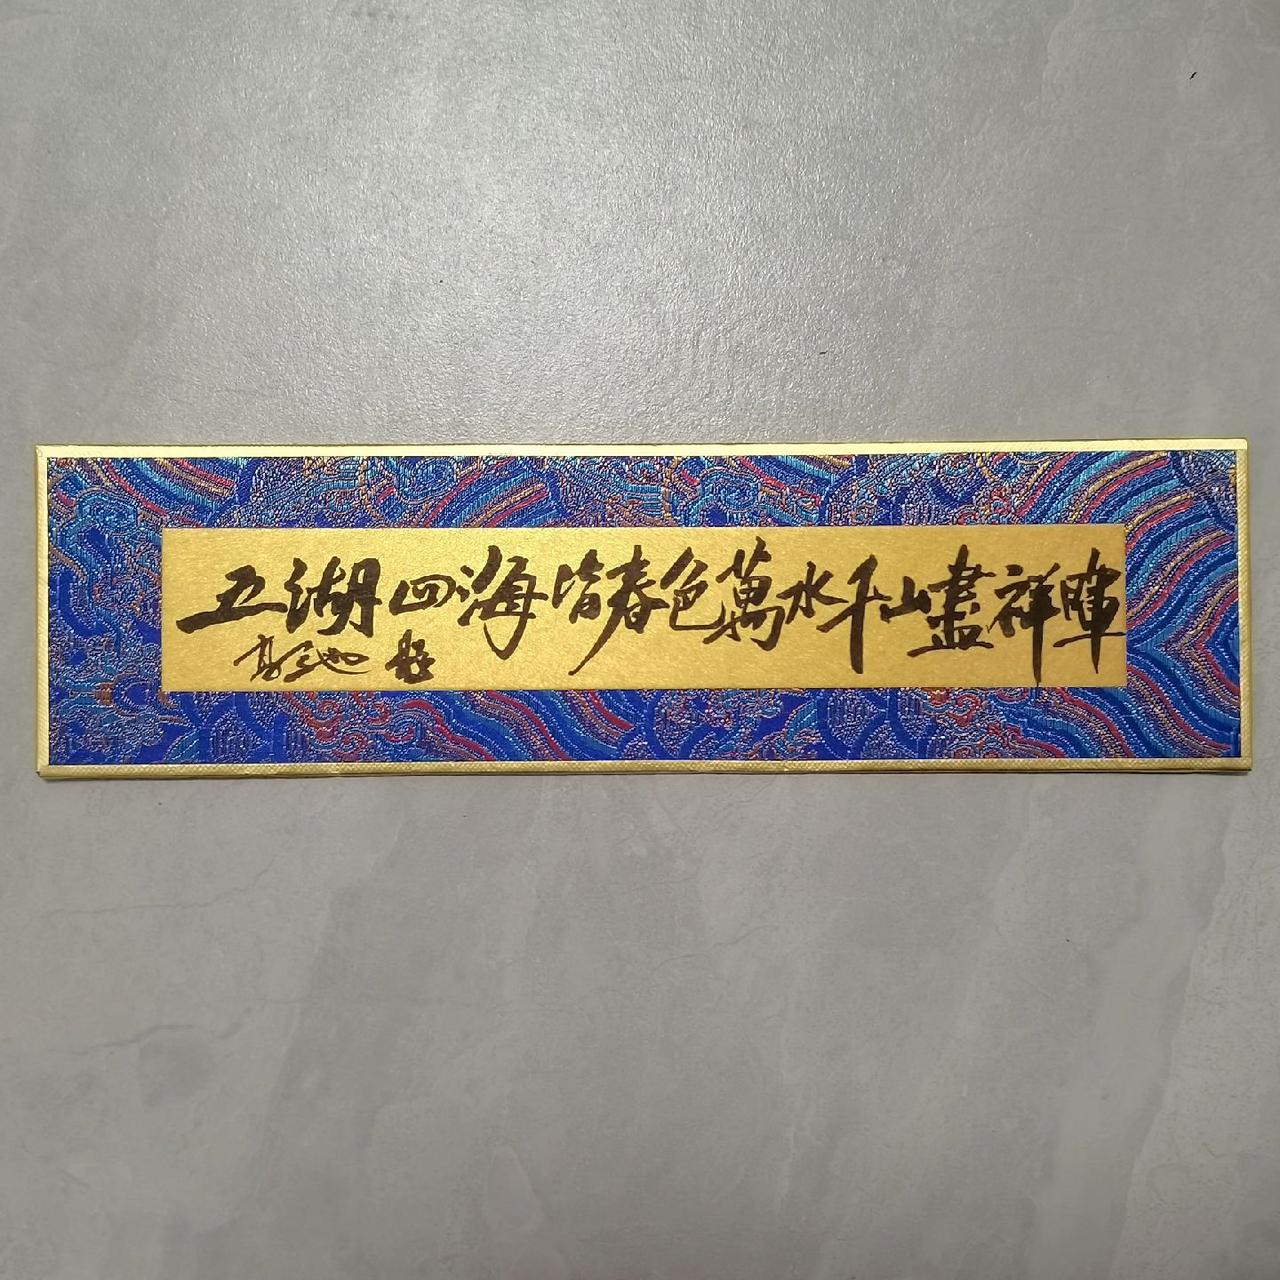 五湖四海皆春色萬水千山盡祥暉